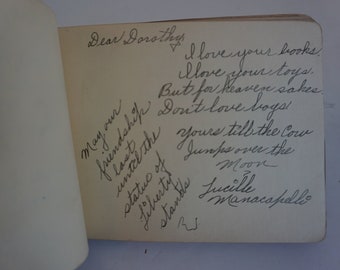 Dear Dorothy
I love your books
I love your toys
But for heaven sakes
Dont love boys
yours till the Cow
Jumps over the
Moon
Lucille
Manacapelli
May our
friendship
last
until the
statue of
Liberty
stands